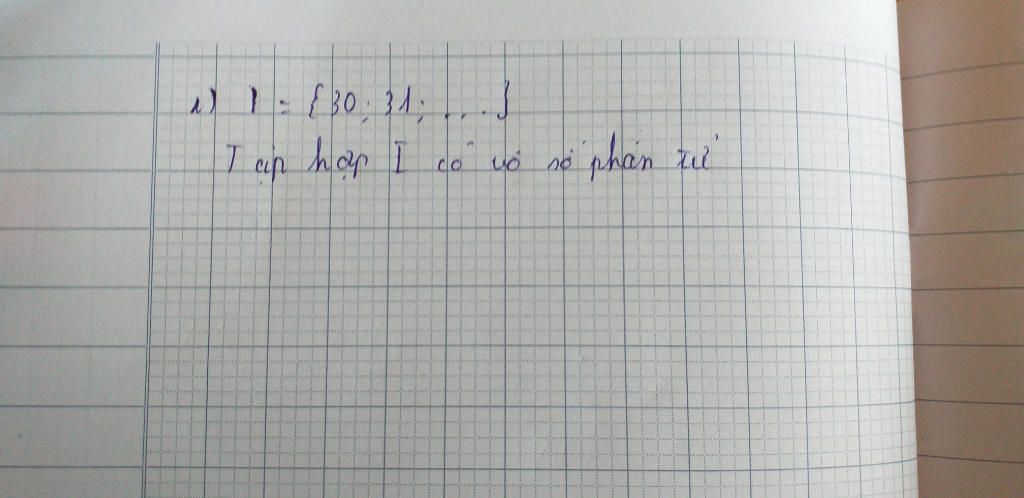 i) I = {30; 31; ...}
Tập hợp I có vô số phần tử